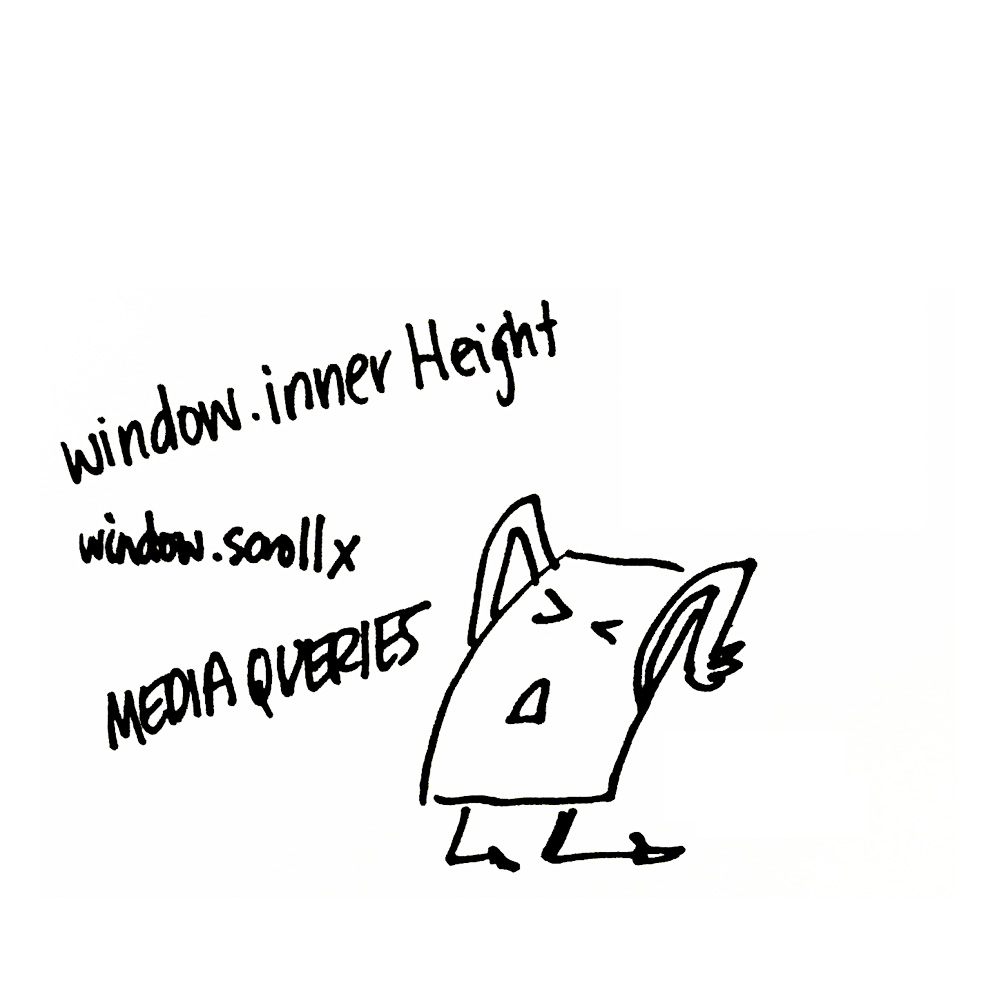 window.innerHeight
window.scrollx
MEDIA QUERIES